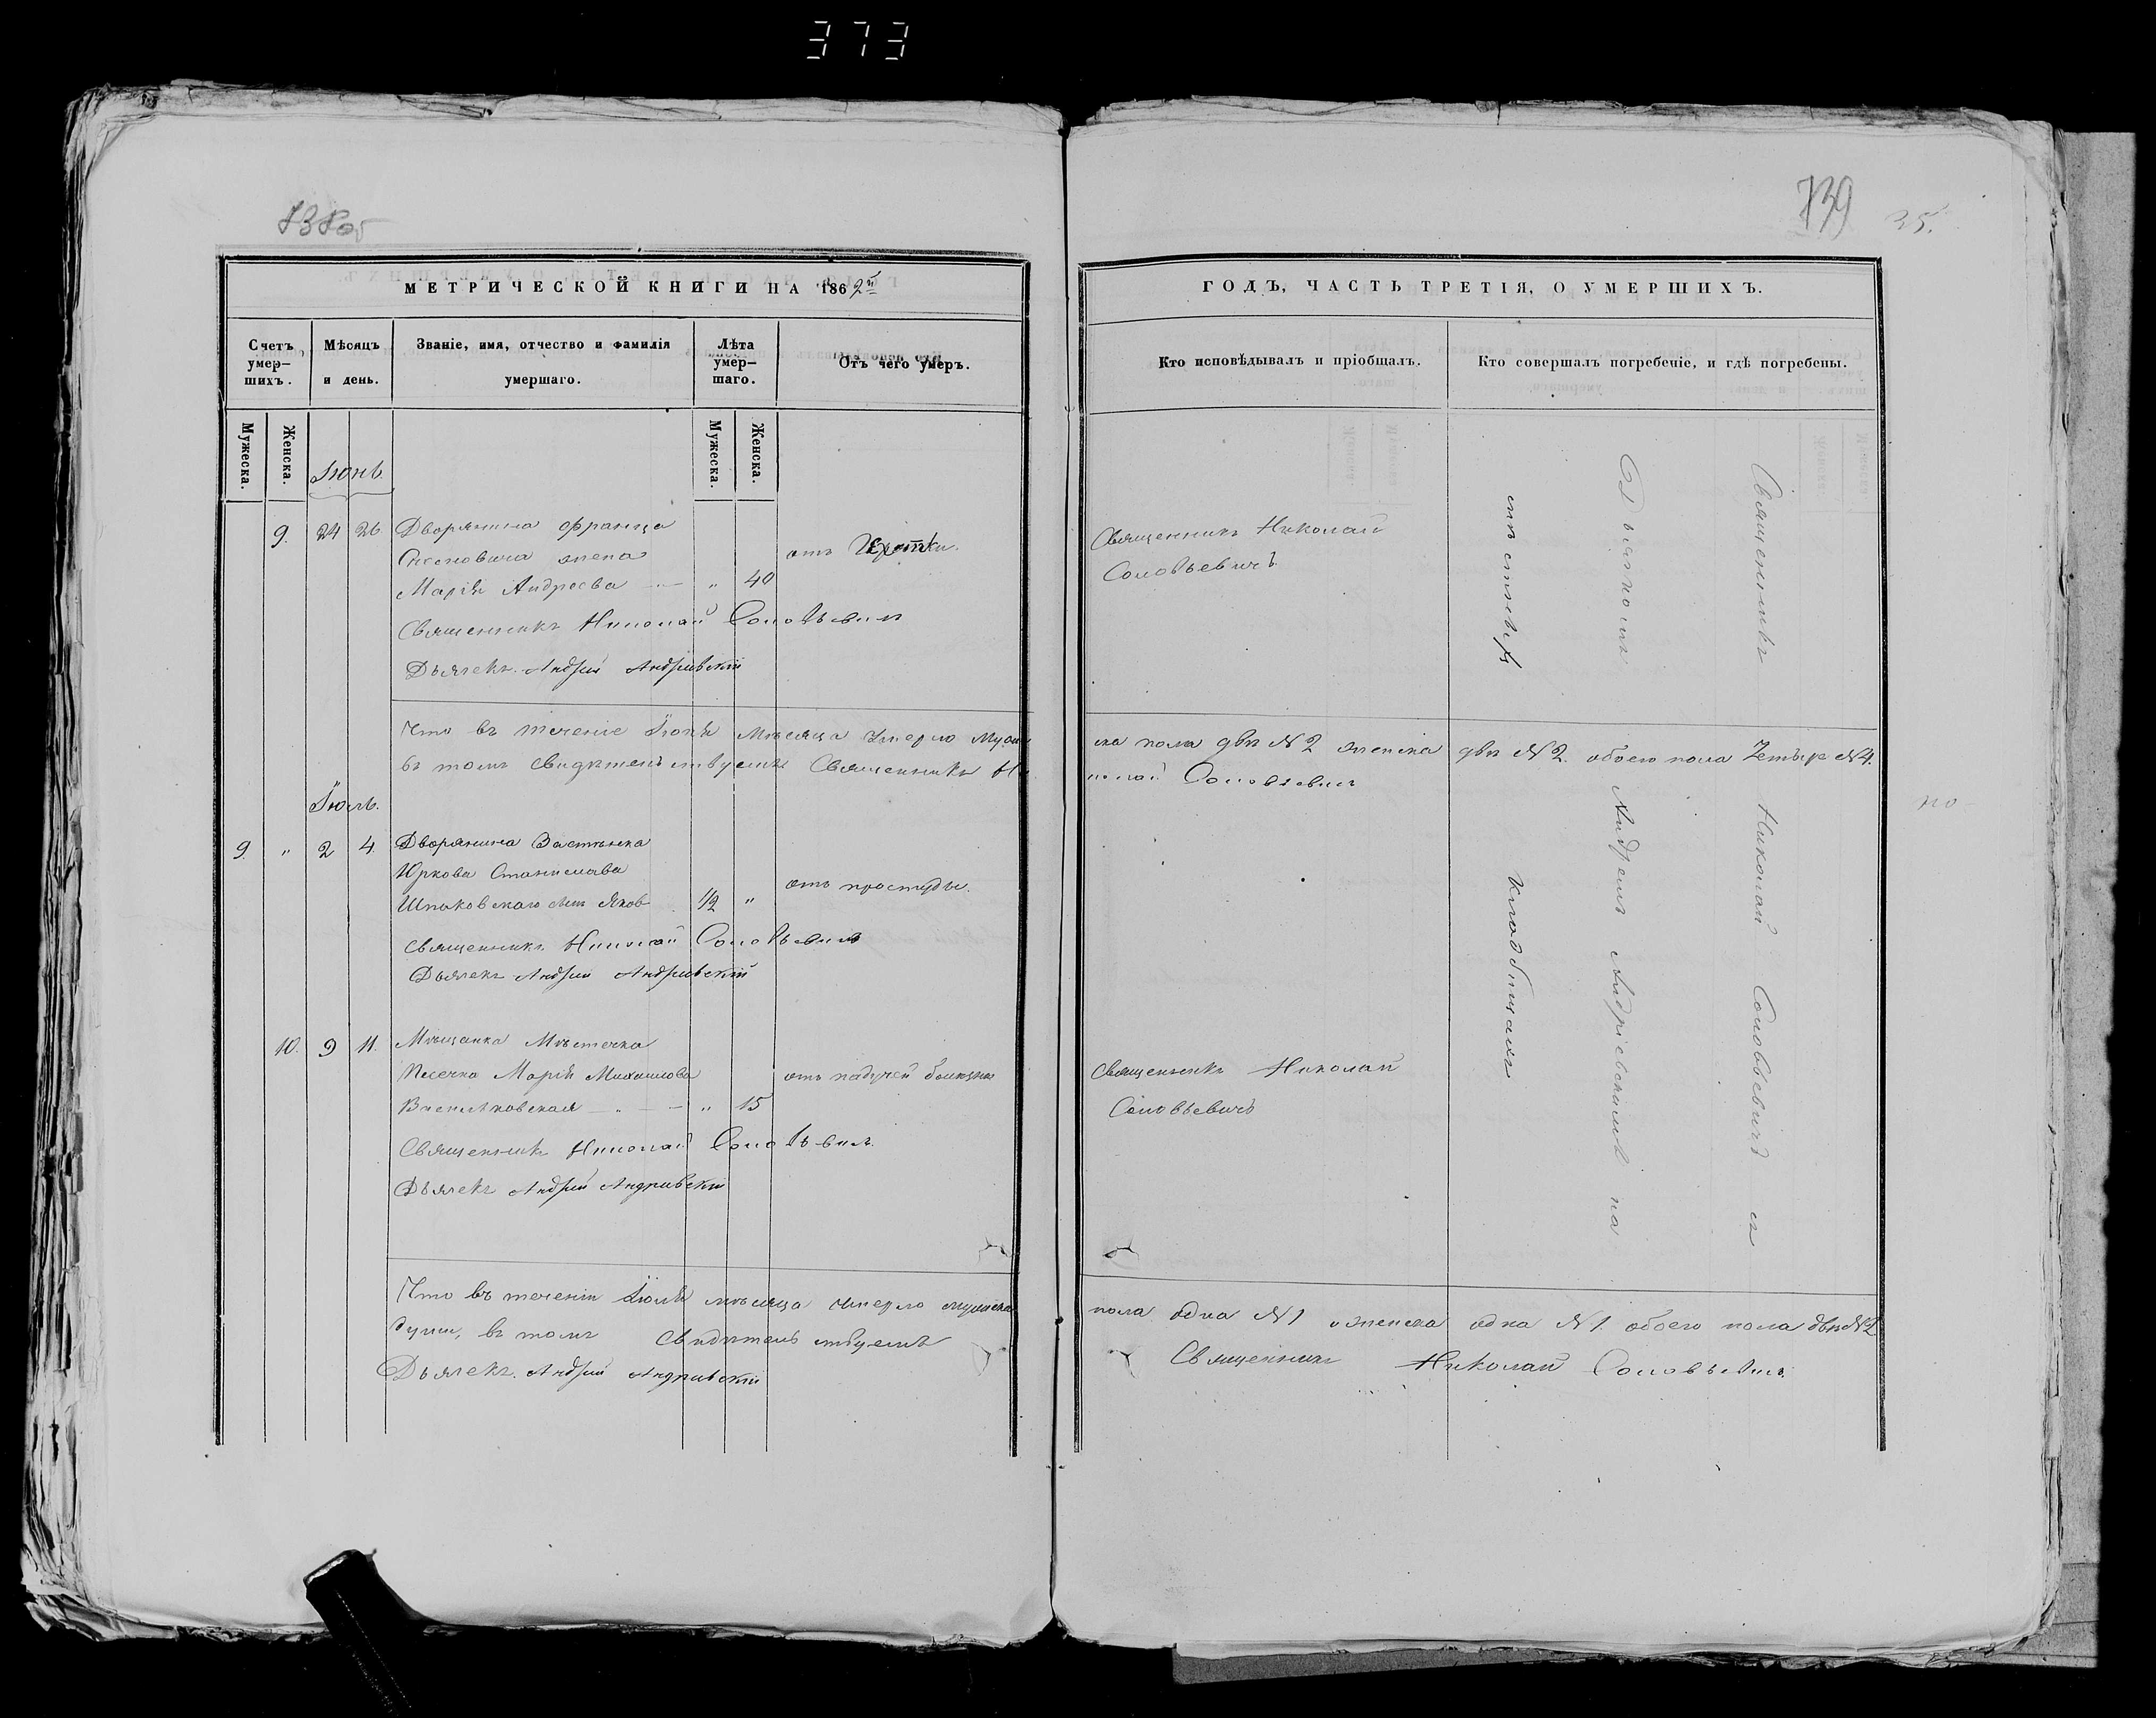 373
738 об
МЕТРИЧЕСКОЙ КНИГИ НА 1862й
Счетъ умер-шихъ.
Мѣсяцъ и день.
Званіе, имя, отчество и фамилія умершаго.
Лѣта умер-шаго.
Отъ чего умеръ.
Мужеска.
Женска.
Мужеска.
Женска.
Іюнь
9. 24 26 Дворянина Франца
жена
Марія Андреева " 40
отъ
Священникъ Николай Соловьевичъ
Дьячекъ Андрей Андріевскій
Что въ теченіе Іюня мѣсяца умерло муже
въ томъ свидѣтельствуемъ Священникъ Ни
Іюль.
9. " 2 4. Дворянина Застѣнка
Юркова Станислава
Шпаковскаго сынъ Яковъ 1/2 "
отъ простуды.
Священникъ Николай Соловьевичъ
Дьячекъ Андрей Андріевскій
10. 9 11. Мѣщанка Мѣстечка
Песечна Марія Михайлова
" 15
отъ падучей болезни
Священникъ Николай Соловьевичъ
Дьячекъ Андрей Андріевскій
Что въ теченіи Іюля мѣсяца умерло мужеска
души, въ томъ свидѣтельствуемъ
Дьячекъ Андрей Андріевскій
739
25.
ГОДЪ, ЧАСТЬ ТРЕТІЯ, О УМЕРШИХЪ.
Кто исповѣдывалъ и пріобщалъ.
Кто совершалъ погребеніе, и гдѣ погребены.
Священникъ Николай
Соловьевичъ
ска пола двѣ №2 женска двѣ №2. обоего пола четыре №4.
колай Соловьевичъ
Священникъ Николай
Соловьевичъ
Священникъ Николай Соловьевичъ съ
Дьячкомъ Андреемъ Андріевскимъ на
кладбищахъ
пола одна №1 женска одна №1. обоего пола двѣ №2
Священникъ Николай Соловьевичъ